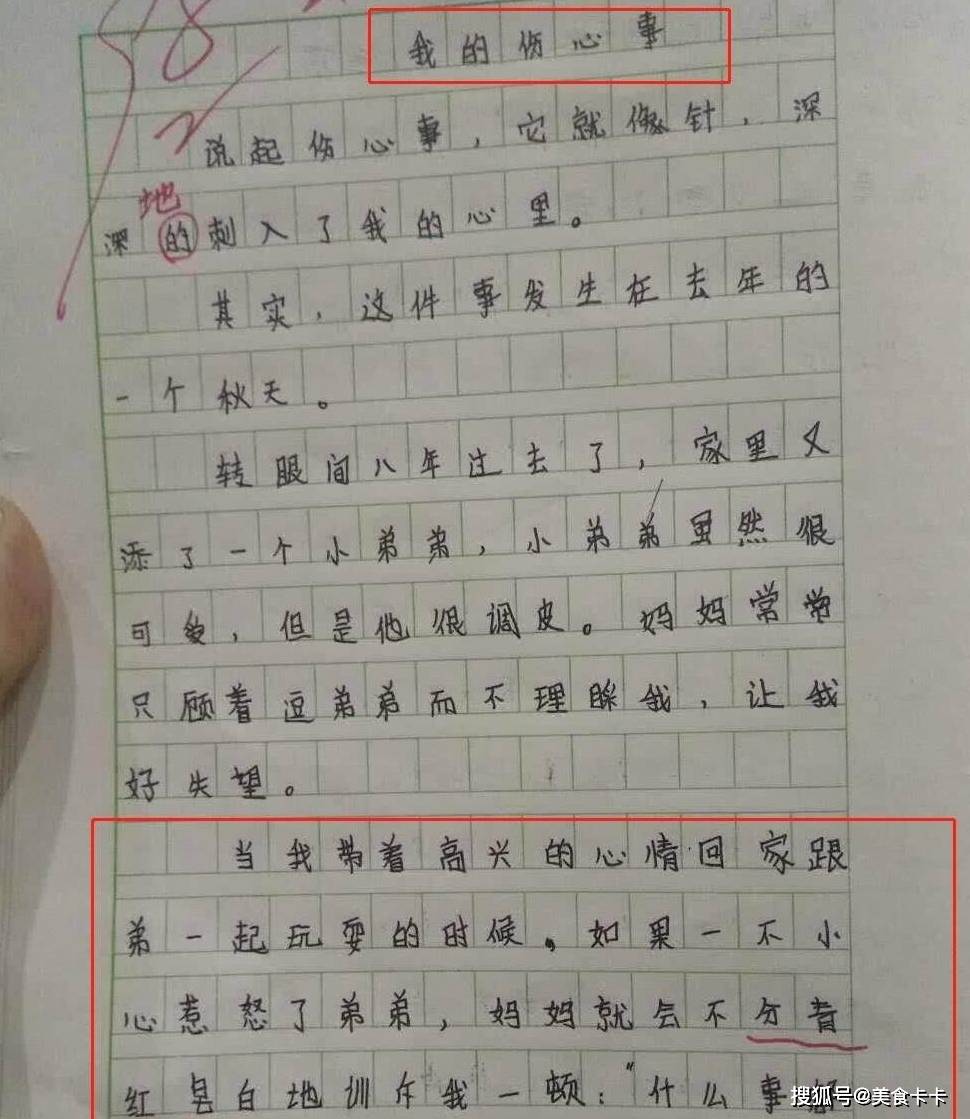 我的伤心事
说起伤心事，它就像针，深
地
深的刺入了我的心里。
其实，这件事发生在去年的
一个秋天。
转眼间八年过去了，家里又
添了一个小弟弟，小弟弟虽然很
可爱，但是他很调皮。妈妈常常
只顾着逗弟弟而不理睬我，让我
好失望。
当我带着高兴的心情回家跟
弟一起玩耍的时候。如果一不小
心惹怒了弟弟，妈妈就会不分青
红皂白地训斥我一顿："什么事
搜狐号@美食卡卡